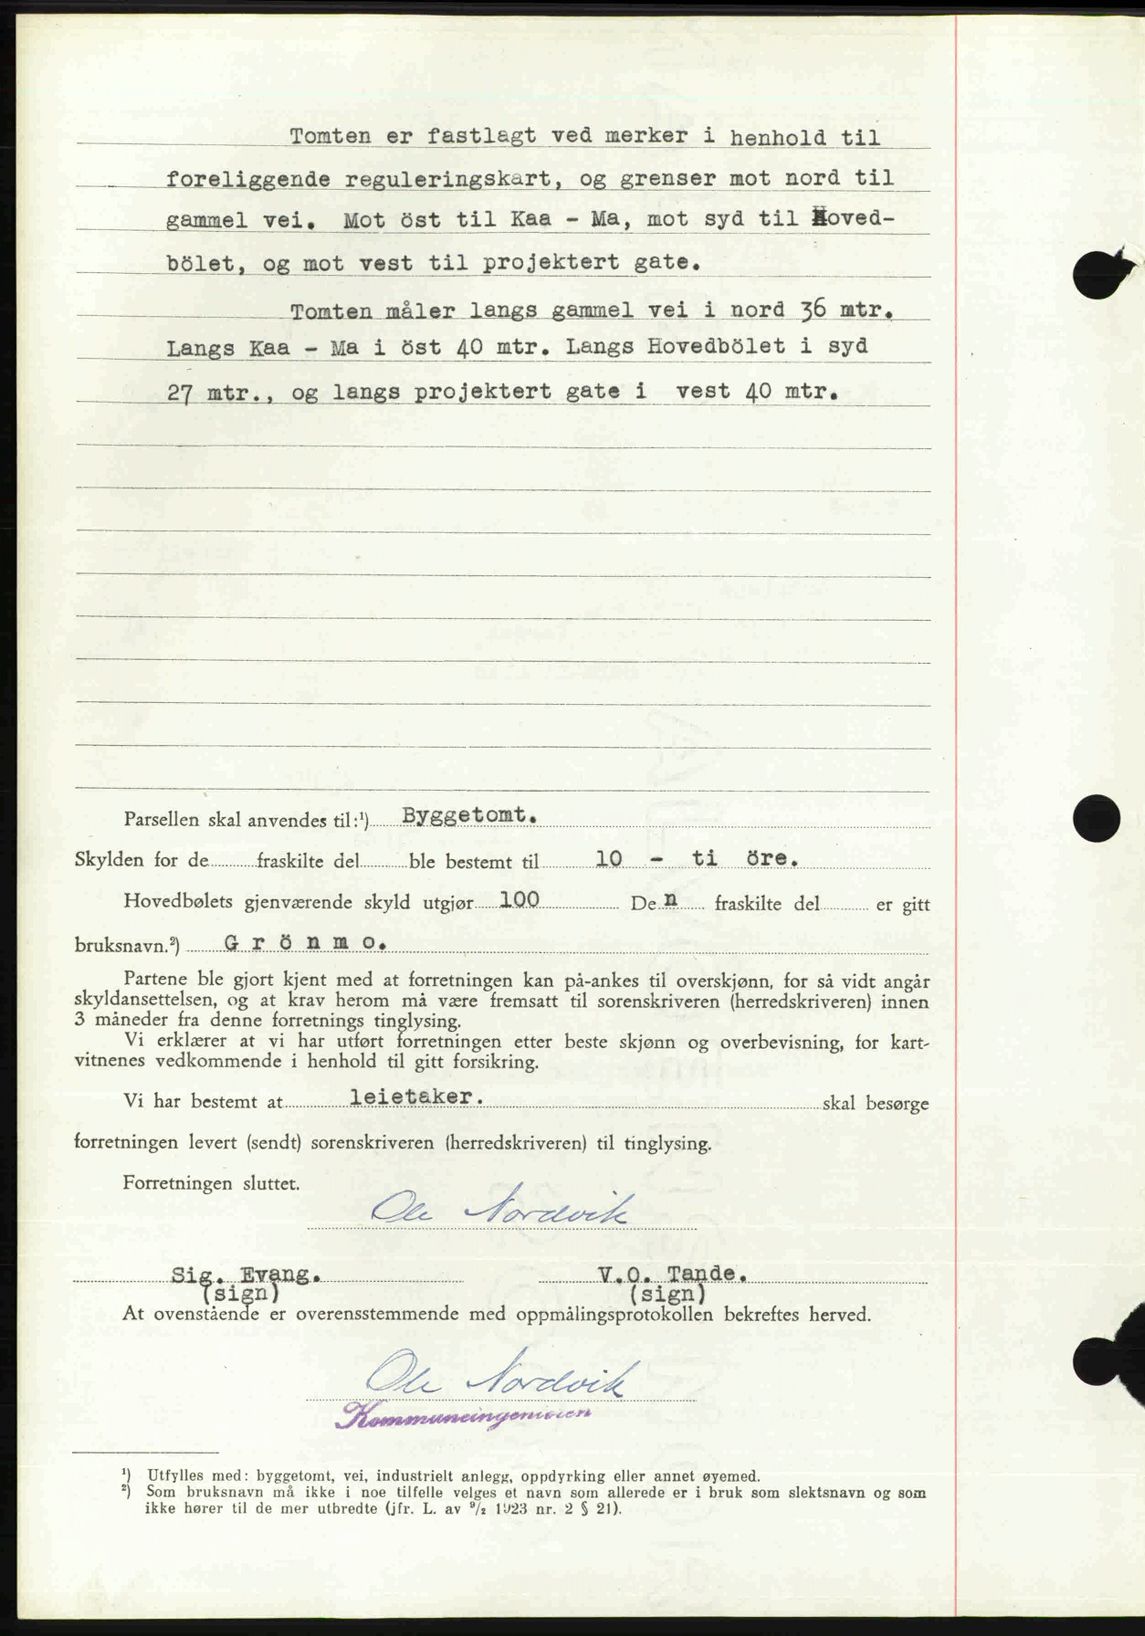 Tomten er fastlagt ved merker i henhold til
foreliggende reguleringskart, og grenser mot nord til
gammel vei. Mot öst til Kaa - Ma, mot syd til Hoved-
bölet, og mot vest til projektert gate.
Tomten måler langs gammel vei i nord 36 mtr.
Langs Kaa - Ma i öst 40 mtr. Langs Hovedbölet i syd
27 mtr., og langs projektert gate i vest 40 mtr.
Parsellen skal anvendes til:¹) Byggetomt.
Skylden for de fraskilte del ble bestemt til 10 - ti öre.
Hovedbølets gjenværende skyld utgjør 100 Den fraskilte del er gitt
bruksnavn.²) Grönmo.
Partene ble gjort kjent med at forretningen kan på-ankes til overskjønn, for så vidt angår
skyldansettelsen, og at krav herom må være fremsatt til sorenskriveren (herredskriveren) innen
3 måneder fra denne forretnings tinglysing.
Vi erklærer at vi har utført forretningen etter beste skjønn og overbevisning, for kart-
vitnenes vedkommende i henhold til gitt forsikring.
Vi har bestemt at leietaker. skal besørge
forretningen levert (sendt) sorenskriveren (herredskriveren) til tinglysing.
Forretningen sluttet.
Ole Nordvik
Sig. Evang. V.O. Tande.
(sign) (sign)
At ovenstående er overensstemmende med oppmålingsprotokollen bekreftes herved.
Ole Nordvik
Kommuneingeniøren
¹) Utfylles med: byggetomt, vei, industrielt anlegg, oppdyrking eller annet øyemed.
²) Som bruksnavn må ikke i noe tilfelle velges et navn som allerede er i bruk som slektsnavn og som
ikke hører til de mer utbredte (jfr. L. av 9/2 1923 nr. 2 § 21).